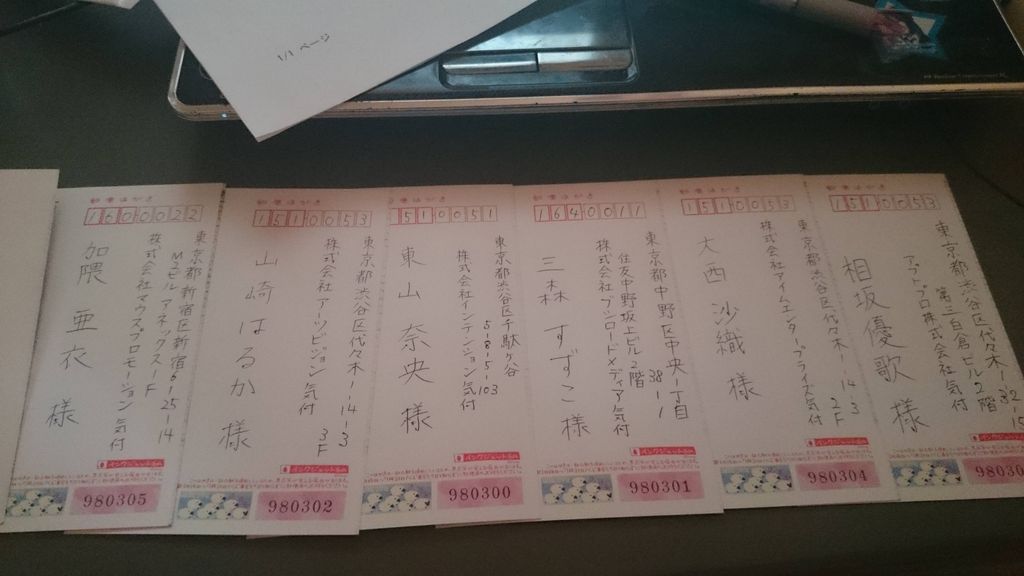 1/1 ページ
郵便はがき
1600022
東京都新宿区新宿6-25-14
Mコビル アネックス1F
株式会社マウスプロモーション 気付
加隈 亜衣 様
インクジェット写真用
980305
郵便はがき
1510053
東京都渋谷区代々木1-14-3
3F
株式会社 アーツビジョン 気付
山崎 はるか 様
980302
郵便はがき
510051
東京都渋谷区千駄ヶ谷
5-8-5-103
株式会社インテンション 気付
東山 奈央 様
980300
郵便はがき
1640011
東京都中野区中央一丁目
38-1
住友中野坂上ビル2階
株式会社ブシロードメディア 気付
三森 すずこ 様
980301
郵便はがき
1510053
東京都渋谷区代々木1-14-3
2F
株式会社アイムエンタープライズ 気付
大西 沙織 様
980304
郵便はがき
1510053
東京都渋谷区代々木1-32-1
第三百倉ビル2階
アプトプロ株式会社 気付
相坂 優歌 様
98030